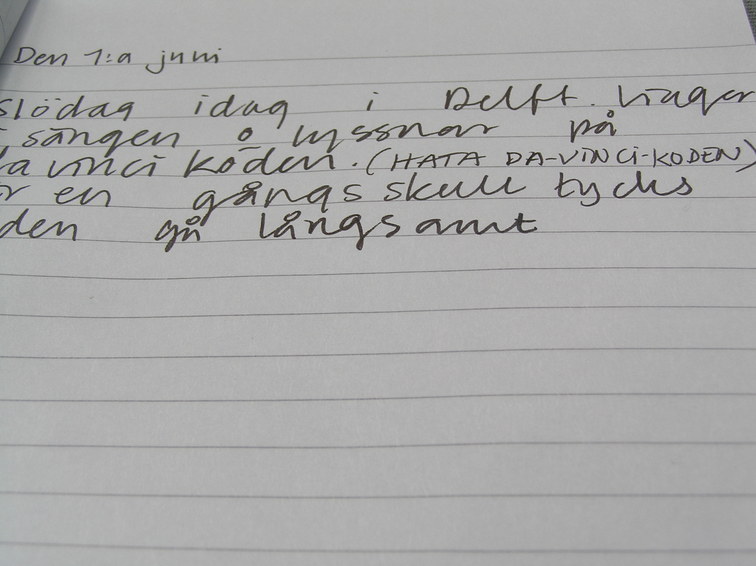 Den 1:a juni
slödag idag i Delft. Ligger
i sängen o lyssnar på
a vinci koden. (HATA DA-VINCI-KODEN)
r en gångs skull tycks
den gå långsamt